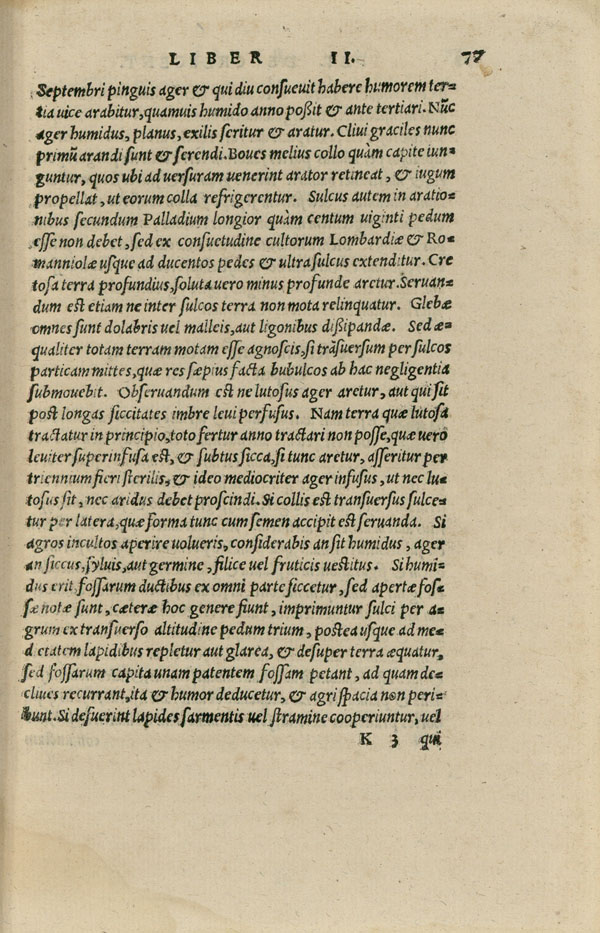 LIBER II. 77
Septembri pinguis ager & qui diu consueuit habere humorem ter=
tia uice arabitur, quamuis humido anno poßit & ante tertiari. Nūc
ager humidus, planus, exilis seritur & aratur. Cliui graciles nunc
primū arandi sunt & serendi. Boues melius collo quàm capite iun=
guntur, quos ubi ad uersuram uenerint arator retineat, & iugum
propellat, ut eorum colla refrigerentur. Sulcus autem in aratio=
nibus secundum Palladium longior quàm centum uiginti pedum
esse non debet, sed ex consuetudine cultorum Lombardiæ & Ro=
manniolæ usque ad ducentos pedes & ultra sulcus extenditur. Cre
tosa terra profundius, soluta uero minus profunde aretur. Seruan=
dum est etiam ne inter sulcos terra non mota relinquatur. Glebæ
omnes sunt dolabris uel malleis, aut ligonibus dißipandæ. Sed æ=
qualiter totam terram motam esse agnoscis, si trāsuersum per sulcos
particam mittes, quæ res sæpius facta bubulcos ab hac negligentia
submouebit. Obseruandum est ne lutosus ager aretur, aut qui sit
post longas siccitates imbre leui perfusus. Nam terra quæ lutosa
tractatur in principio, toto fertur anno tractari non posse, quæ uero
leuiter superinfusa est, & subtus sicca, si tunc aretur, asseritur per
triennium fieri sterilis, & ideo mediocriter ager infusus, ut nec lu=
tosus sit, nec aridus debet proscindi. Si collis est transuersus sulce=
tur per latera, quæ forma tunc cum semen accipit est seruanda. Si
agros incultos aperire uolueris, considerabis an sit humidus, ager
an siccus, syluis, aut germine, filice uel fruticis uestitus. Si humi=
dus erit fossarum ductibus ex omni parte siccetur, sed apertæ fos=
sæ notæ sunt, cæteræ hoc genere fiunt, imprimuntur sulci per a=
grum ex transuerso altitudine pedum trium, postea usque ad me=
dietatem lapidibus repletur aut glarea, & desuper terra æquatur,
sed fossarum capita unam patentem fossam petant, ad quam de=
cliues recurrant, ita & humor deducetur, & agri spacia non peri=
bunt. Si defuerint lapides sarmentis uel stramine cooperiuntur, uel
K 3 qui